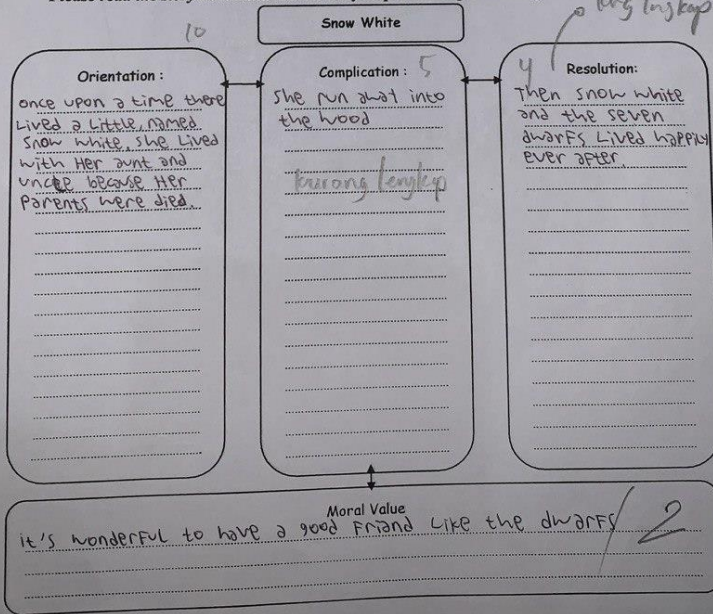 krg lengkap
Snow White
10
Orientation :
once upon a time there
Lived a Little, named
Snow White, She Lived
with Her aunt and
uncle because Her
Parents were died.
Complication : 5
She run awat into
the wood
kurang lengkap
4 Resolution:
Then snow white
and the seven
dwarfs Lived happily
ever after.
Moral Value
it's wonderful to have a good Friend Like the dwarfs
2